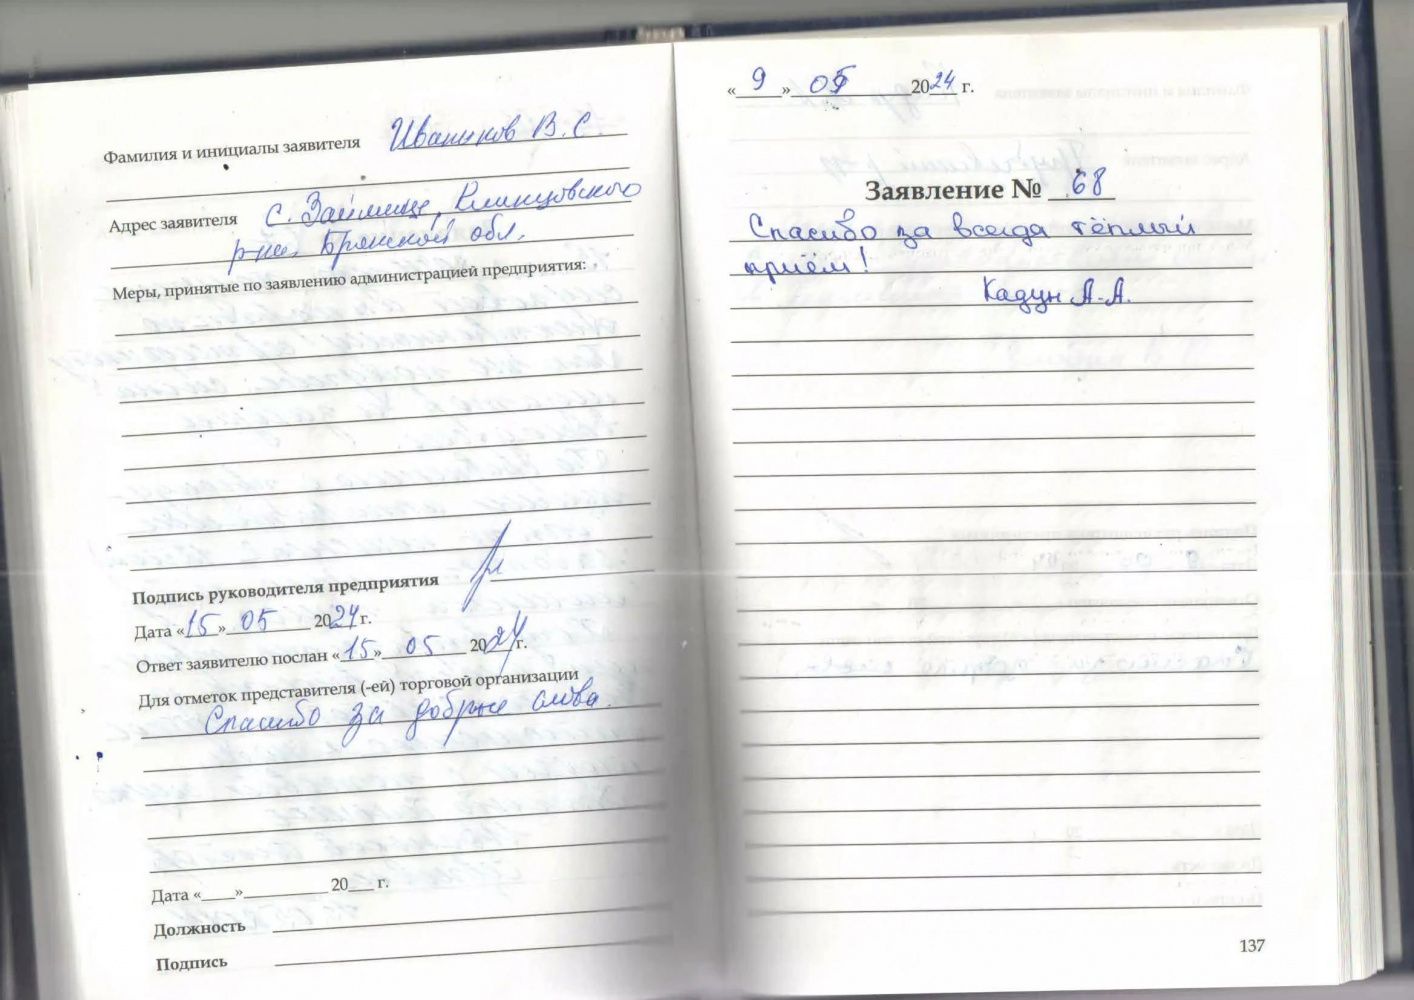 Фамилия и инициалы заявителя Иванюков В.С.
Адрес заявителя с. Займище, Клинцовского
р-на, Брянской обл.
Меры, принятые по заявлению администрацией предприятия:
Подпись руководителя предприятия
Дата «15» 05 2024 г.
Ответ заявителю послан «15» 05 2024 г.
Для отметок представителя (-ей) торговой организации
Спасибо за добрые слова.
Дата «___»________ 20___ г.
Должность
Подпись
«9» 05 2024 г.
Заявление № 68
Спасибо за всегда тёплый
приём!
Кадун А.А.
137